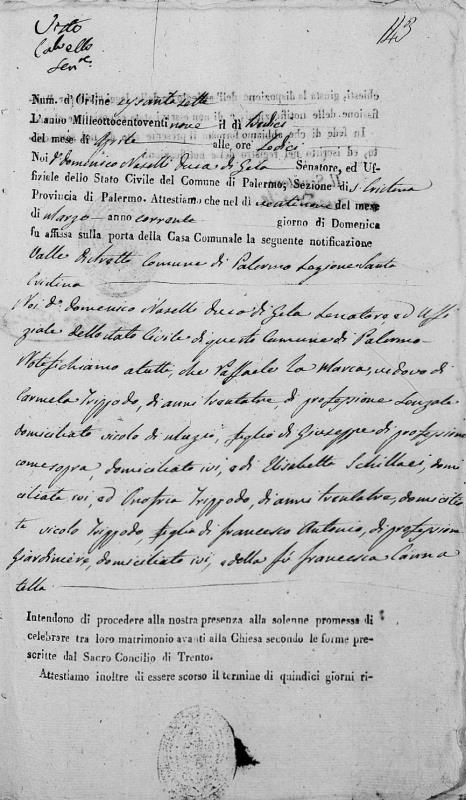 Visto
Calvello
Sen.e
143
Num. d'Ordine sessantasette
L'anno Milleottocentoventinove il dì Dodeci
del mese di Aprile alle ore Sedeci
Noi D. Domenico Naselli Duca di Gela Senatore, ed Uf-
fiziale dello Stato Civile del Comune di Palermo; Sezione di S. Cristina
Provincia di Palermo. Attestiamo che nel dì ventinove del mese
di Marzo anno corrente giorno di Domenica
fu affissa sulla porta della Casa Comunale la seguente notificazione
Valle Distretto Comune di Palermo Sezione Santa
Cristina
Noi D. Domenico Naselli Duca di Gela Senatore, ed Uffi
ziale dello stato Civile di questo Comune di Palermo
Notifichiamo a tutti, che Raffaele La Marca, vedovo di
Carmela Trippodo, di anni trentatre, di professione
domiciliato vicolo di, figlio di Giuseppe di professione
come sopra, domiciliato ivi, e di Elisabetta Schillaci, domi
ciliata ivi, ed Onofria Trippodo, di anni trentatre, domicilia
ta vicolo Trippodo figlia di Francesco Antonio, di professione
Giardiniere, domiciliato ivi, e della fù Francesca Canna
tella
Intendono di procedere alla nostra presenza alla solenne promessa di
celebrare tra loro matrimonio avanti alla Chiesa secondo le forme pre-
scritte dal Sacro Concilio di Trento.
Attestiamo inoltre di essere scorso il termine di quindici giorni ri-